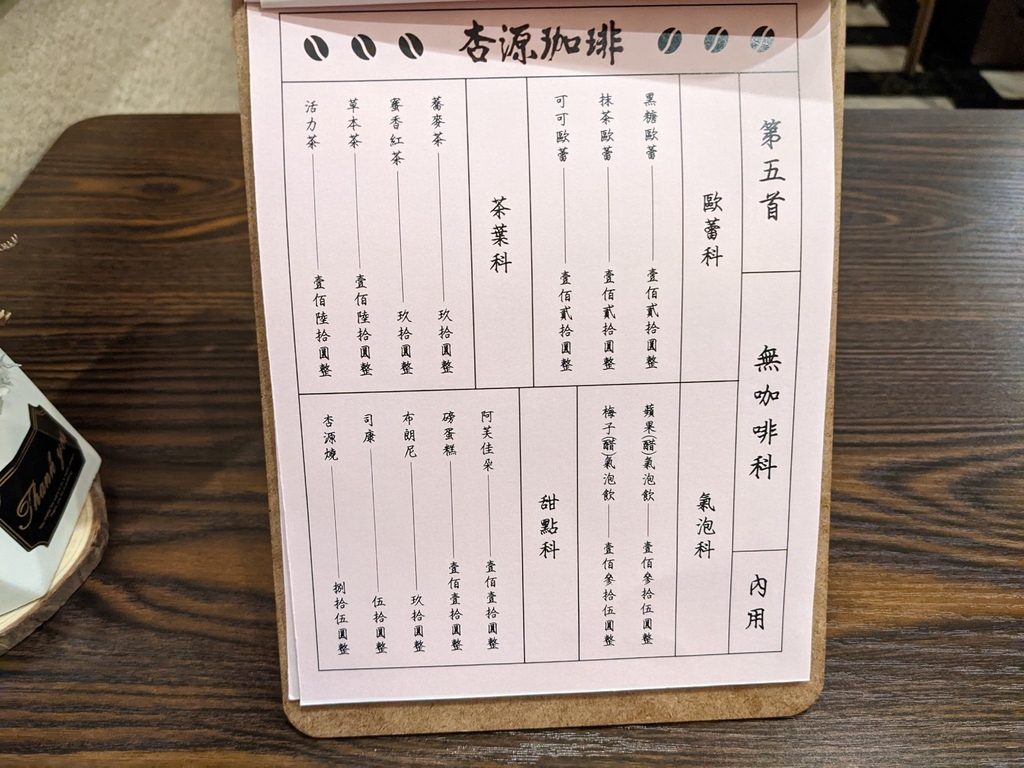 杏源珈琲
第五首
無咖啡科
內用
歐蕾科
黑糖歐蕾 壹佰貳拾圓整
抹茶歐蕾 壹佰貳拾圓整
可可歐蕾 壹佰貳拾圓整
茶葉科
蕎麥茶 玖拾圓整
蜜香紅茶 玖拾圓整
草本茶 壹佰陸拾圓整
活力茶 壹佰陸拾圓整
氣泡科
蘋果(醋)氣泡飲 壹佰參拾伍圓整
梅子(醋)氣泡飲 壹佰參拾伍圓整
甜點科
阿芙佳朵 壹佰壹拾圓整
磅蛋糕 壹佰壹拾圓整
布朗尼 玖拾圓整
司康 伍拾圓整
杏源燒 捌拾伍圓整
Thank you